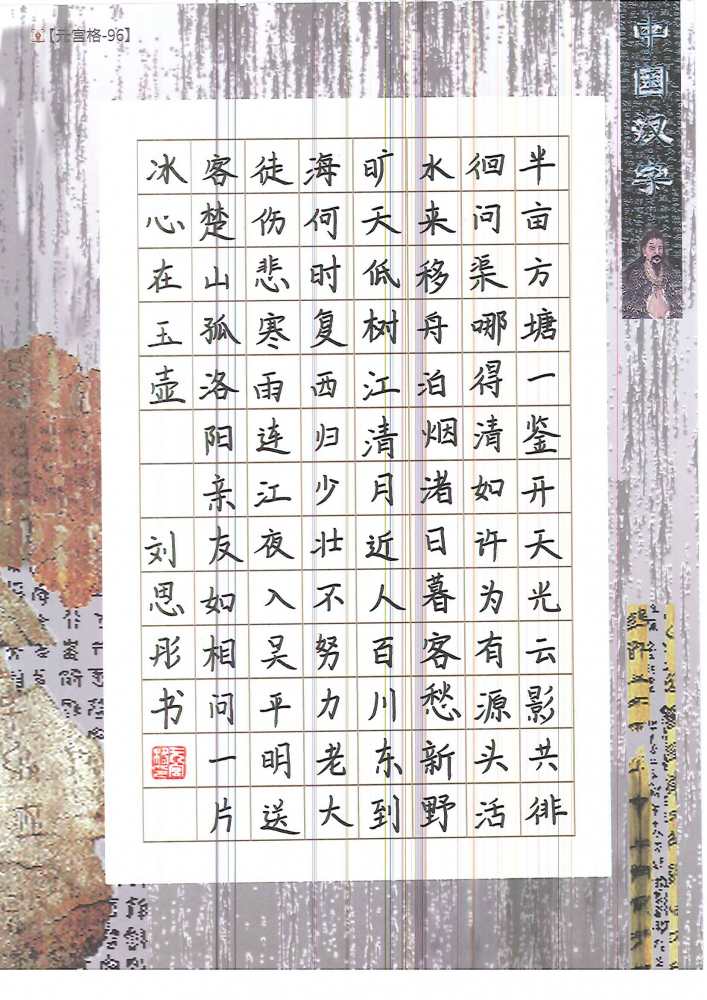 【元宫格-96】
中国汉字
半亩方塘一鉴开天光云影共徘
徊问渠哪得清如许为有源头活
水来移舟泊烟渚日暮客愁新野
旷天低树江清月近人百川东到
海何时复西归少壮不努力老大
徒伤悲寒雨连江夜入吴平明送
客楚山孤洛阳亲友如相问一片
冰心在玉壶 刘思彤书